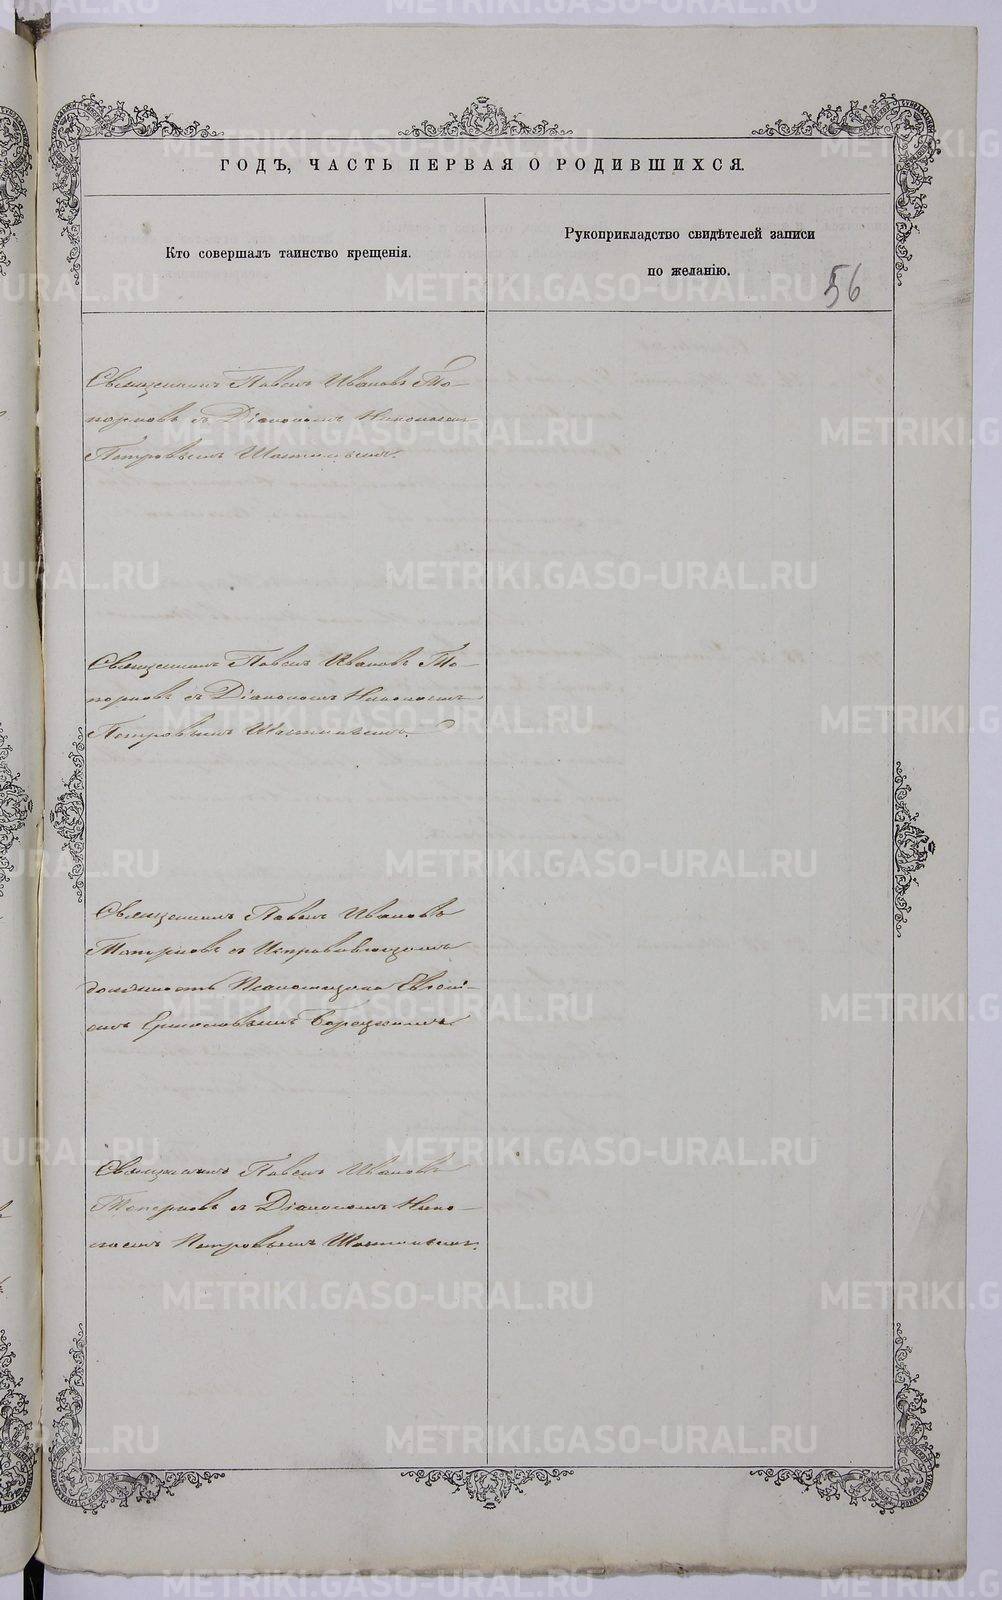 ГОДЪ, ЧАСТЬ ПЕРВАЯ О РОДИВШИХСЯ.
Кто совершалъ таинство крещенія.
Рукоприкладство свидѣтелей записи
по желанію.
56
Священникъ Павелъ Ивановъ То-
порковъ съ Діакономъ Николаем
Петровымъ
Священникъ Павелъ Ивановъ То-
порковъ съ Діакономъ Николаемъ
Петровымъ
Священникъ Павелъ Ивановъ
Топорковъ съ Исправляющимъ
должность Псаломщика Евгені-
емъ
Священникъ Павелъ Ивановъ
Топорковъ съ Діакономъ Нико-
лаемъ Петровымъ
METRIKI.GASO-URAL.RU